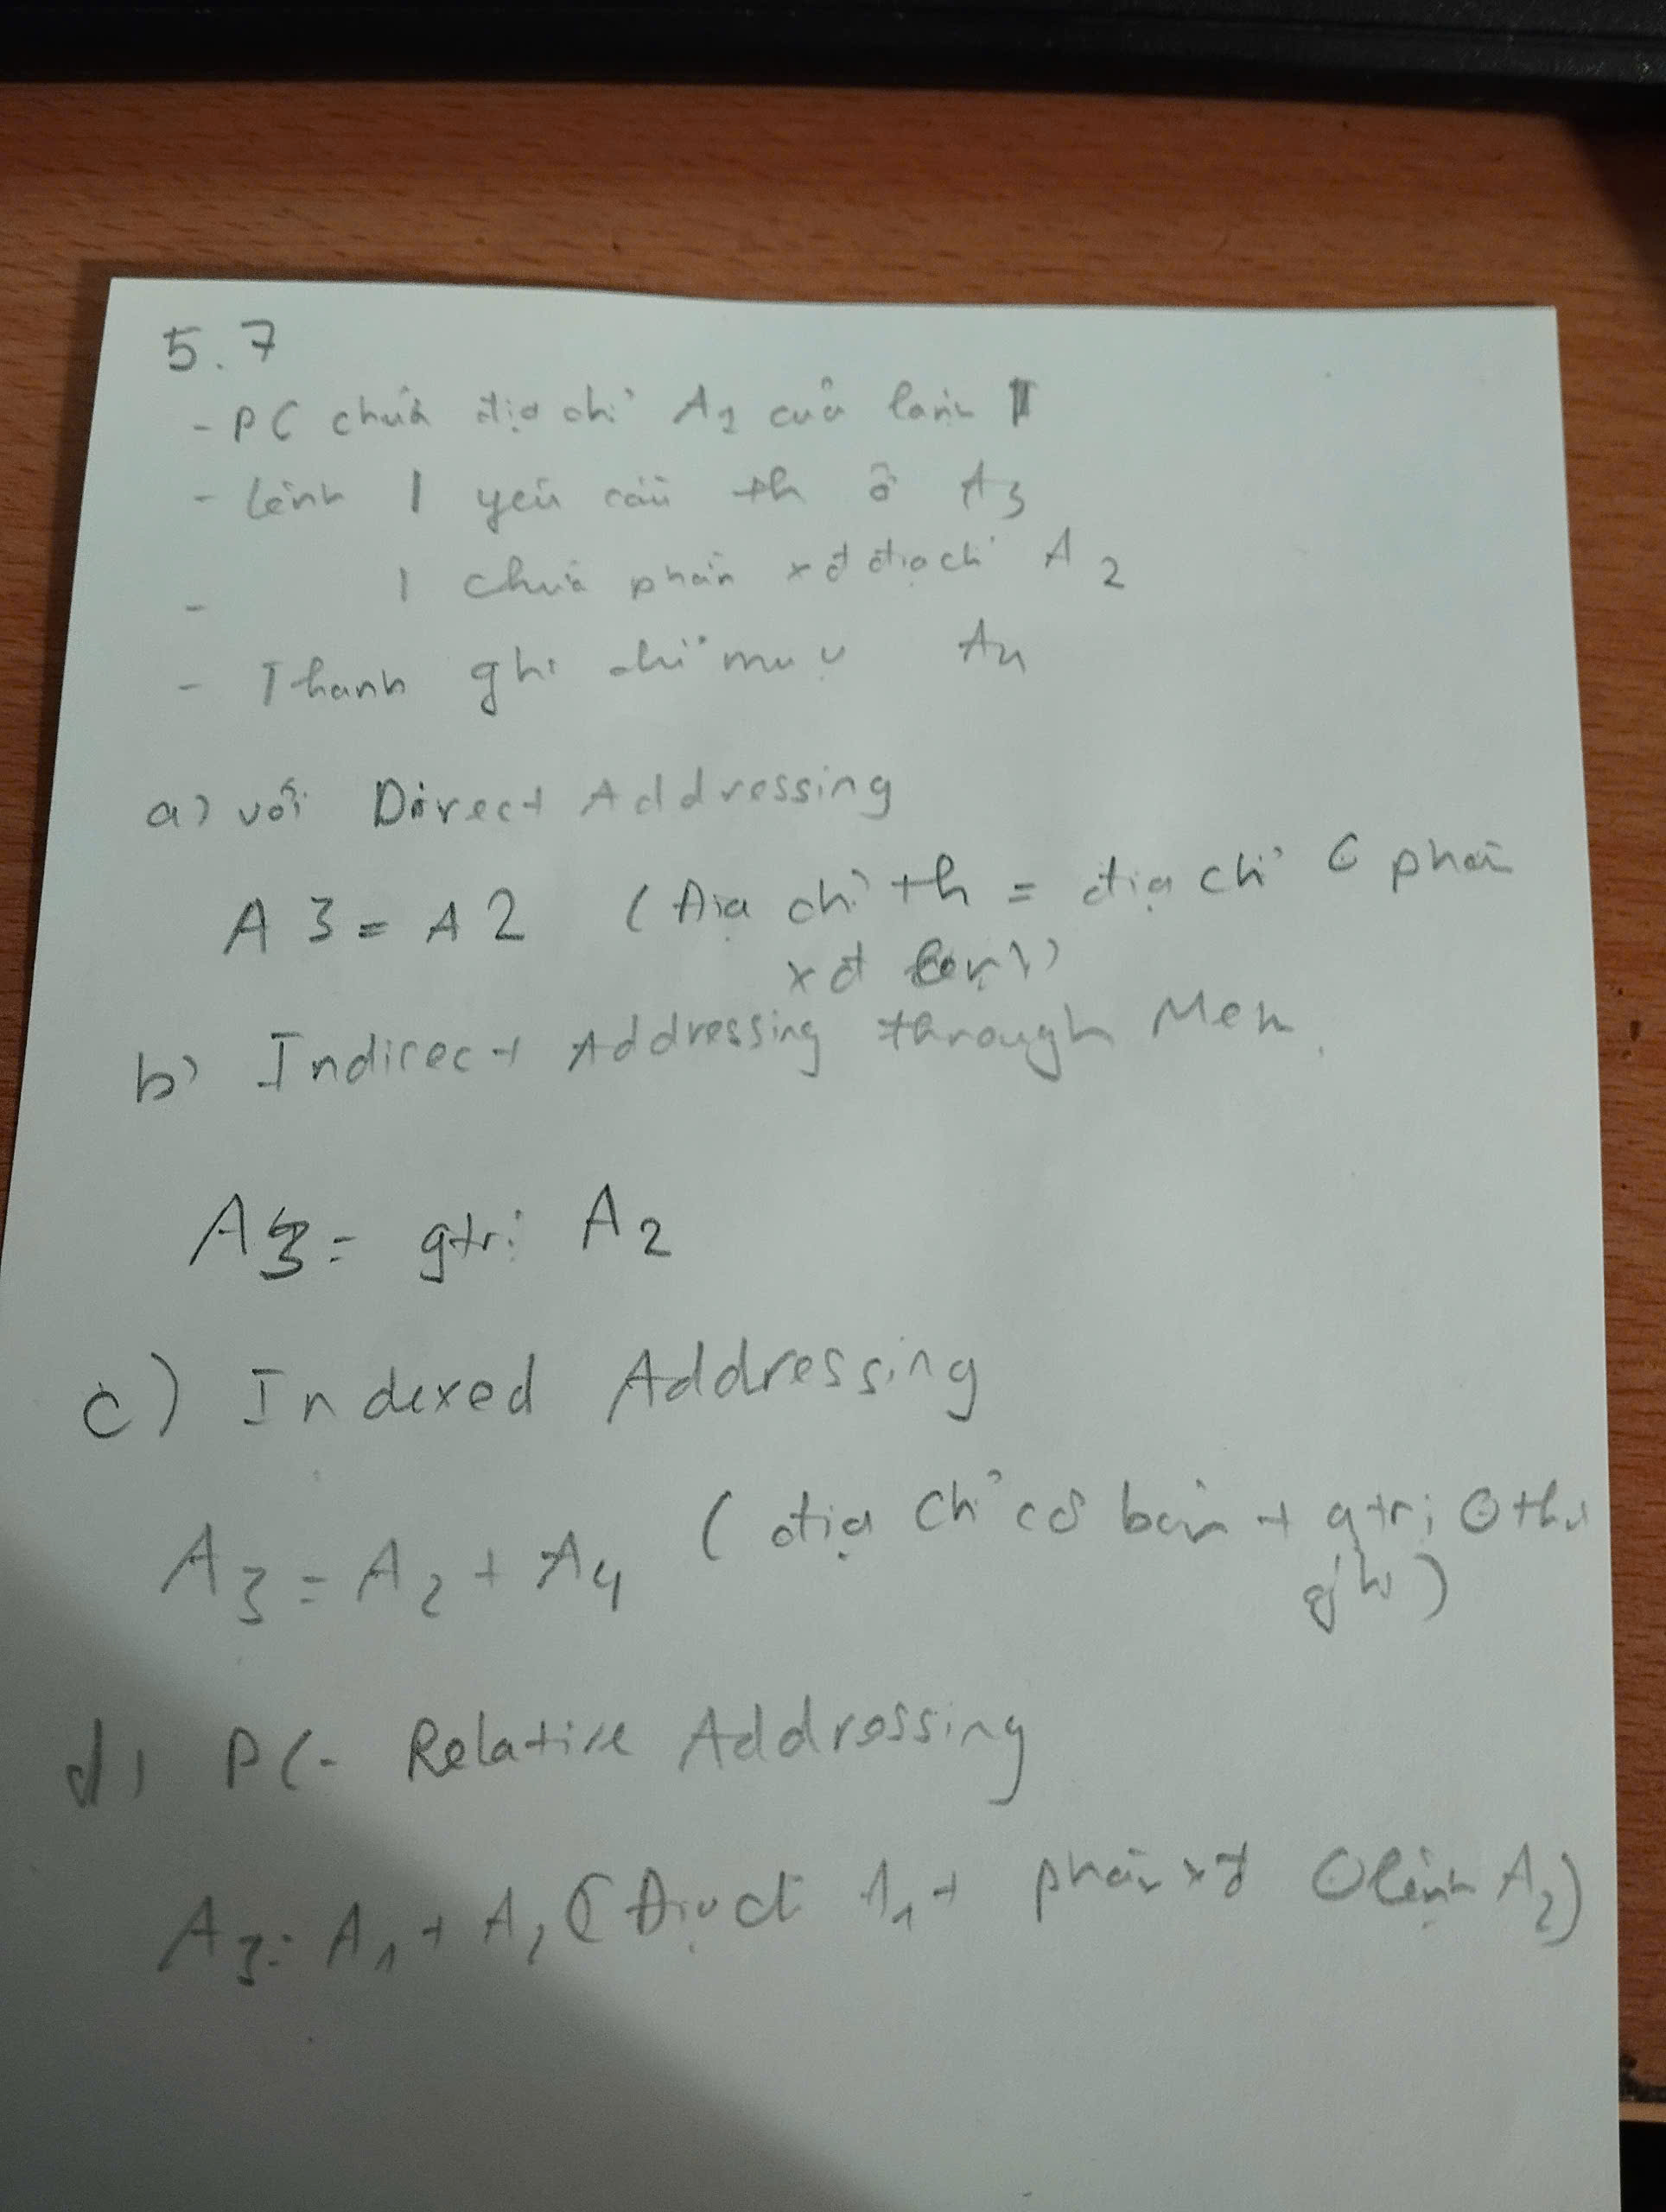 5.7
- PC chứa địa chỉ A1 của lệnh I
- Lệnh I yêu cầu th ô A3
- I chứa phần xđ địa chỉ A2
- Thanh ghi chỉ mục A4
a) với Direct Addressing
A3 = A2 (Địa chỉ th = địa chỉ ở phần
xđ lệnh)
b) Indirect Addressing through Mem.
A3 = gtrị A2
c) Indexed Addressing
A3 = A2 + A4 (địa chỉ cơ bản + gtrị ở tha
ghi)
d) PC- Relative Addressing
A3 = A1 + A2 (Địa chỉ A1 + phần xđ ở lệnh A2)